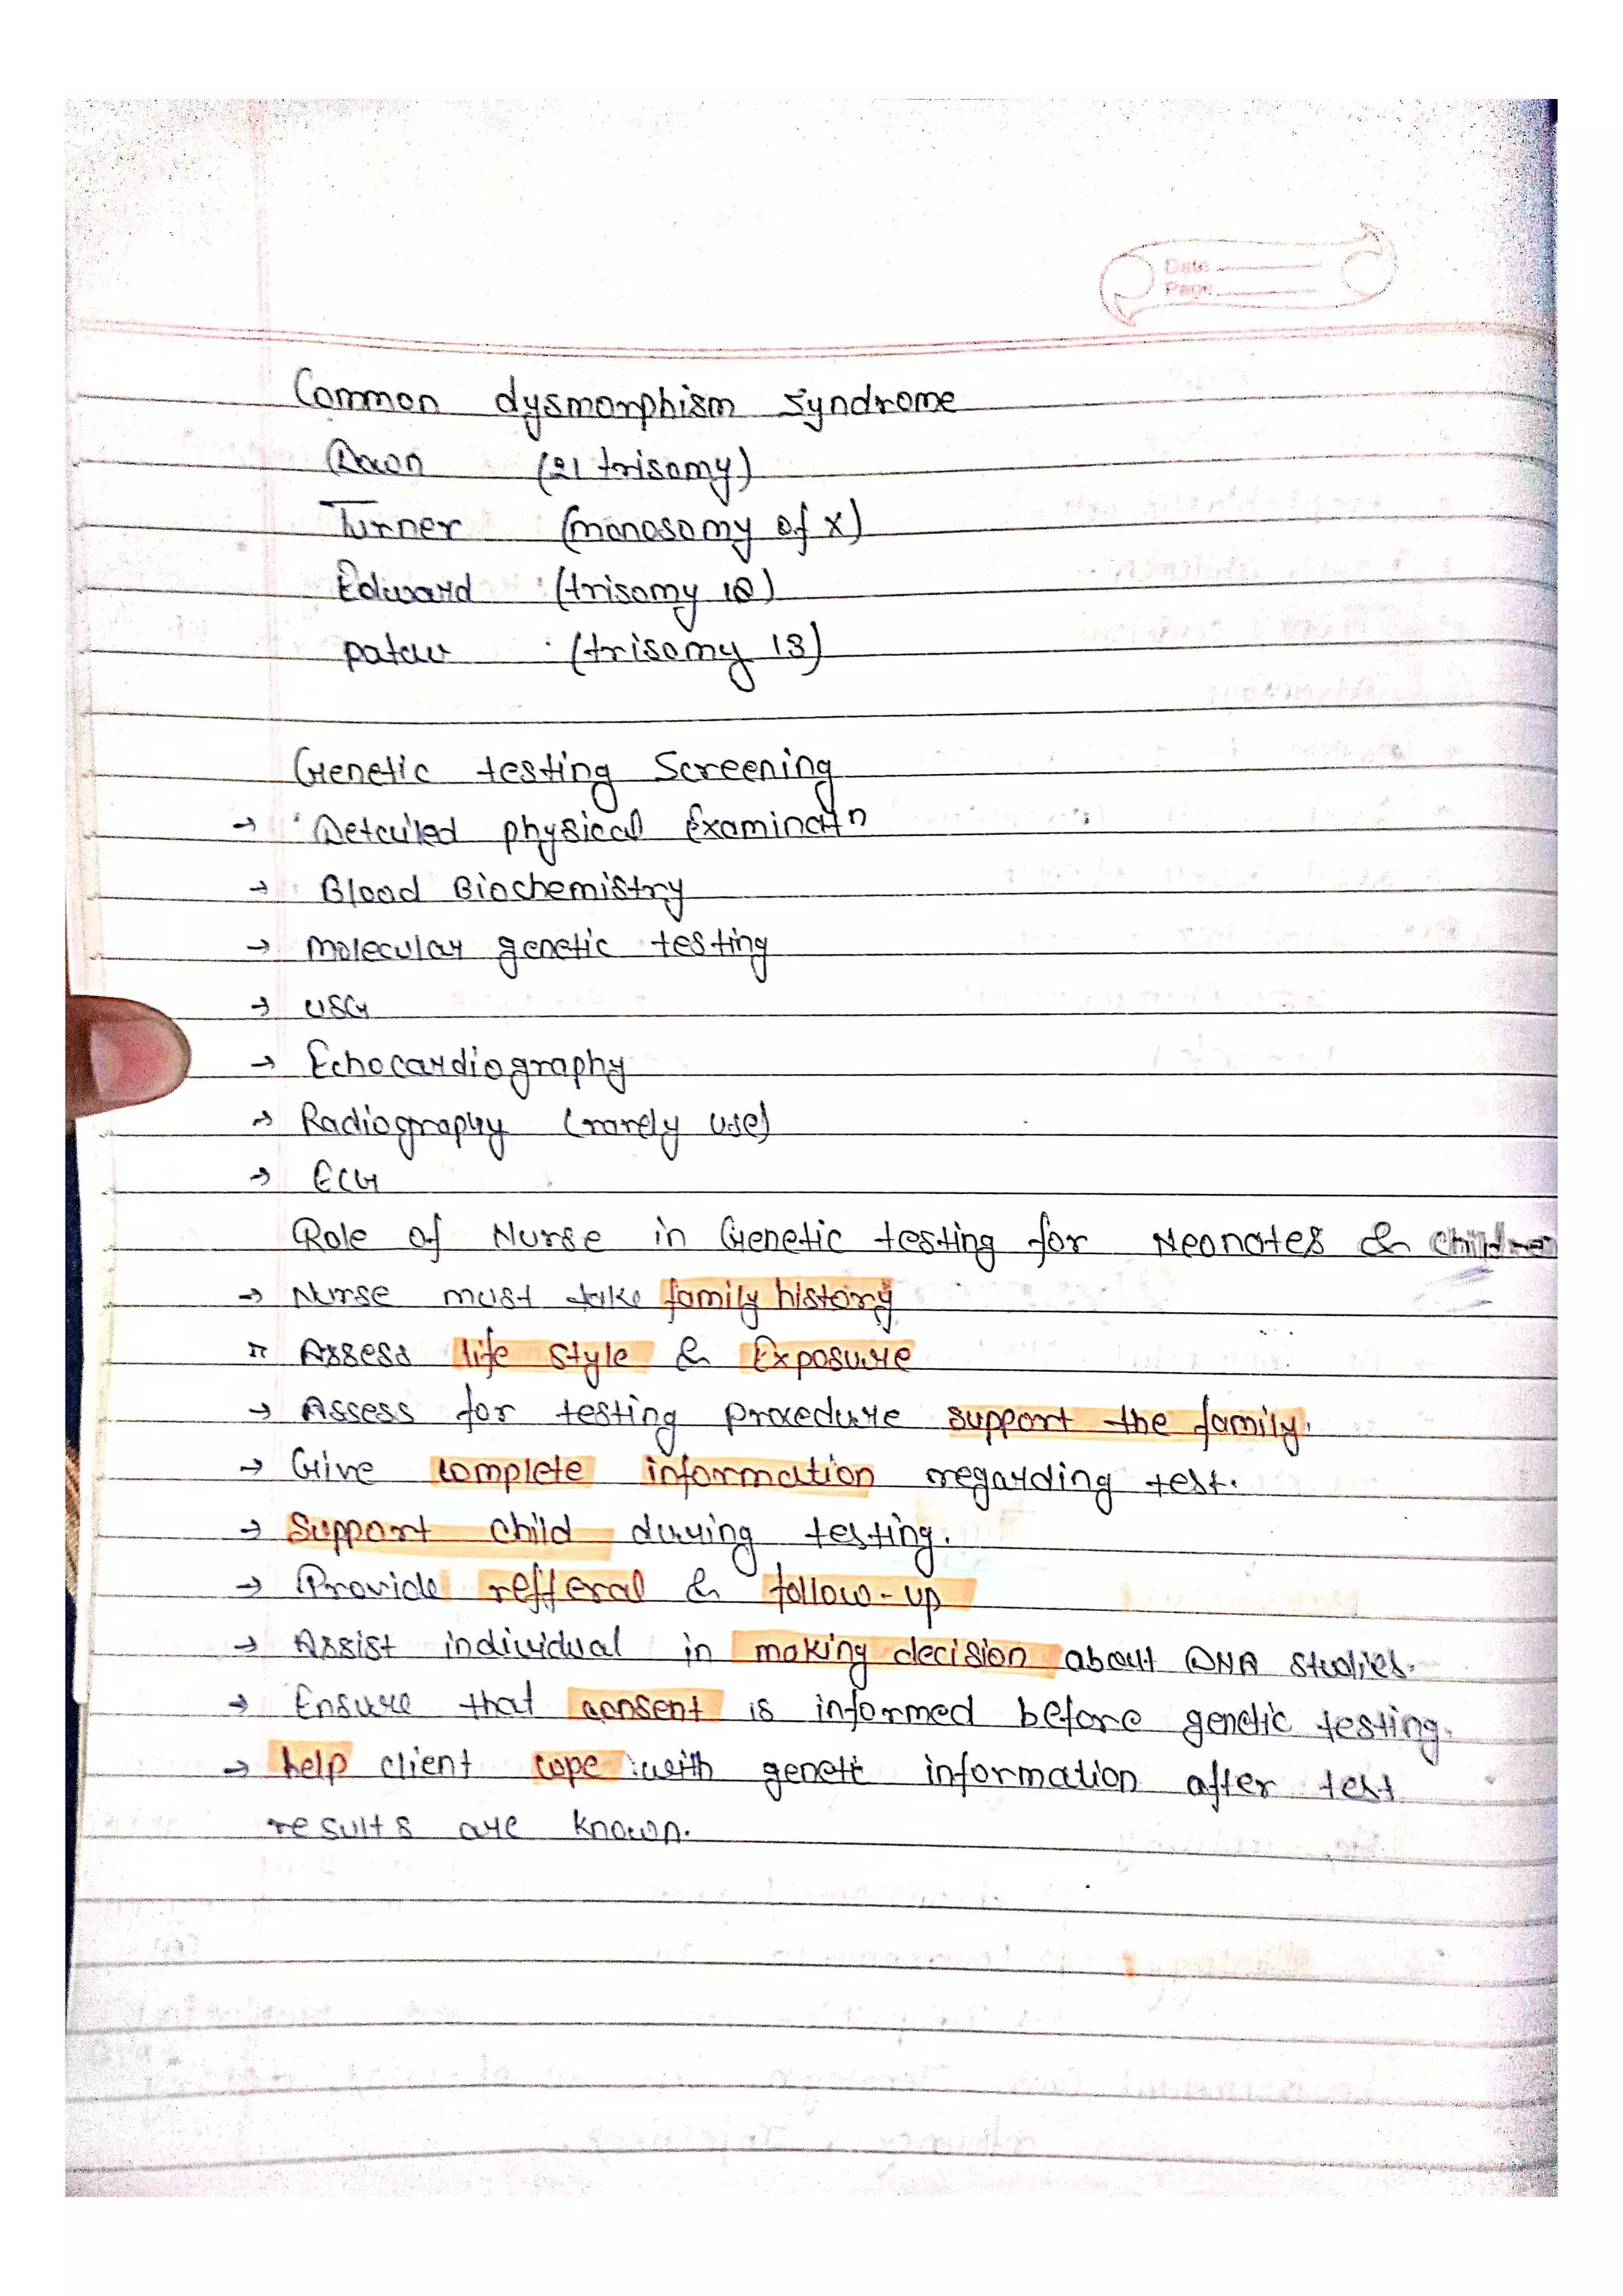 Date
Page
Common dysmorphism Syndrome
Down (21 trisomy)
Turner (monosomy of x)
Edward (trisomy 18)
patau (trisomy 13)
Genetic testing Screening
→ Detailed physical Examinatn
→ Blood Biochemistry
→ molecular genetic testing
→ USG
→ Echocardiography
→ Radiography (rarely use)
→ ECG
Role of Nurse in Genetic testing for Neonates & children
→ Nurse must take family history
→ Assess life style & Exposure
→ Assess for testing procedure support the family.
→ Give complete information regarding test.
→ Support child during testing.
→ Provide refferal & follow-up
→ Assist individual in making decision about DNA studies.
→ Ensure that consent is informed before genetic testing.
→ help client cope with genetic information after test
results are known.